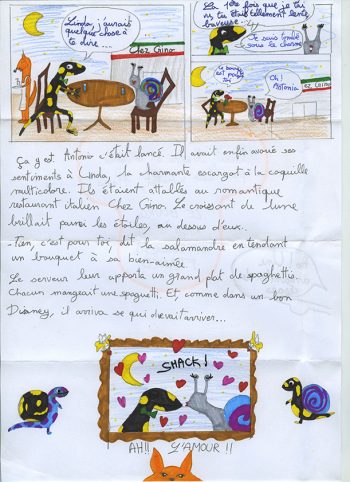 Linda, j'aurais
quelque chose à
te dire...
Chez Gino
La 1ère fois que je t'ai
vu, tu étais tellement lente,
baveuse...
Je suis tombé
sous le charme
Ce bouquet
est pour
toi
Oh!
Antonio
Chez Gino
Ça y est. Antonio s'était lancé. Il avait enfin avoué ses
sentiments à Linda, la charmante escargot à la coquille
multicolore. Ils étaient attablés au romantique
restaurant italien Chez Gino. Le croissant de lune
brillait parmi les étoiles, au dessus d'eux.
- Tien, c'est pour toi, dit la salamandre en tendant
un bouquet à sa bien-aimée.
Le serveur leur apporta un grand plat de spaghettis.
Chacun mangeait une spaghetti. Et, comme dans un bon
Disney, il arriva se qui devait arriver...
SMACK!
AH!! L'AMOUR!!